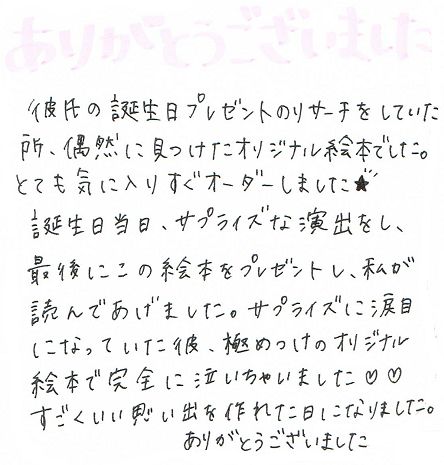 ありがとうございました
彼氏の誕生日プレゼントのリサーチをしていた
所、偶然に見つけたオリジナル絵本でした。
とても気に入りすぐオーダーしました★
誕生日当日、サプライズな演出をし、
最後にこの絵本をプレゼントし、私が
読んであげました。サプライズに涙目
になっていた彼、極めつけのオリジナル
絵本で完全に泣いちゃいました♡♡
すごくいい思い出を作れた日になりました。
ありがとうございました